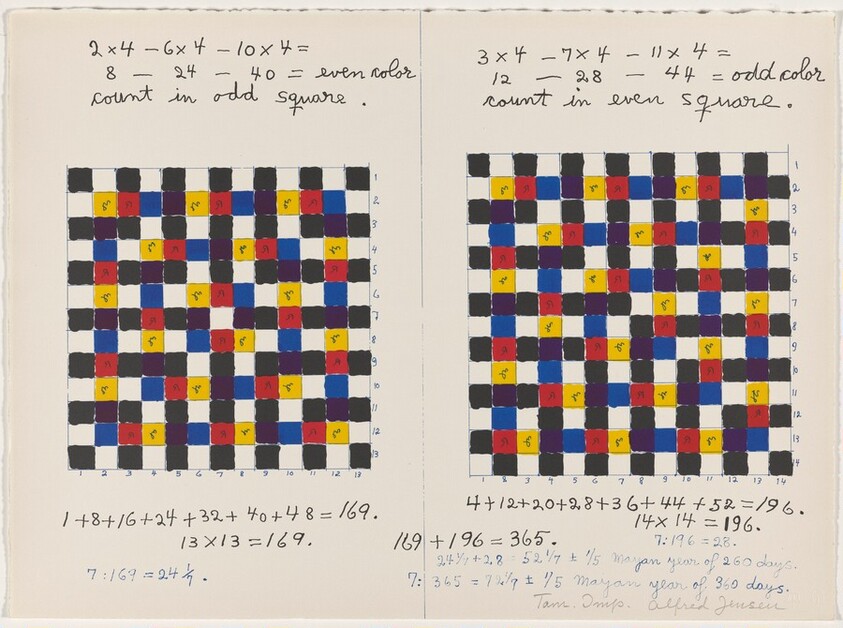 2 x 4 — 6 x 4 — 10 x 4 =
8 — 24 — 40 = even color
count in odd square.
1
2
3
4
5
6
7
8
9
10
11
12
13
1 2 3 4 5 6 7 8 9 10 11 12 13
1+8+16+24+32+40+48=169.
13 x 13 = 169.
7:169 = 24 1/7.
3 x 4 — 7 x 4 — 11 x 4 =
12 — 28 — 44 = odd color
count in even square.
1
2
3
4
5
6
7
8
9
10
11
12
13
14
1 2 3 4 5 6 7 8 9 10 11 12 13 14
4+12+20+28+36+44+52=196.
14 x 14 = 196.
169 + 196 = 365.
7:196 = 28.
24 1/7 + 28 = 52 1/7 ± 1/5 Mayan year of 260 days.
7: 365 = 72 1/7 ± 1/5 Mayan year of 360 days.
Tam. Imp. Alfred Jensen